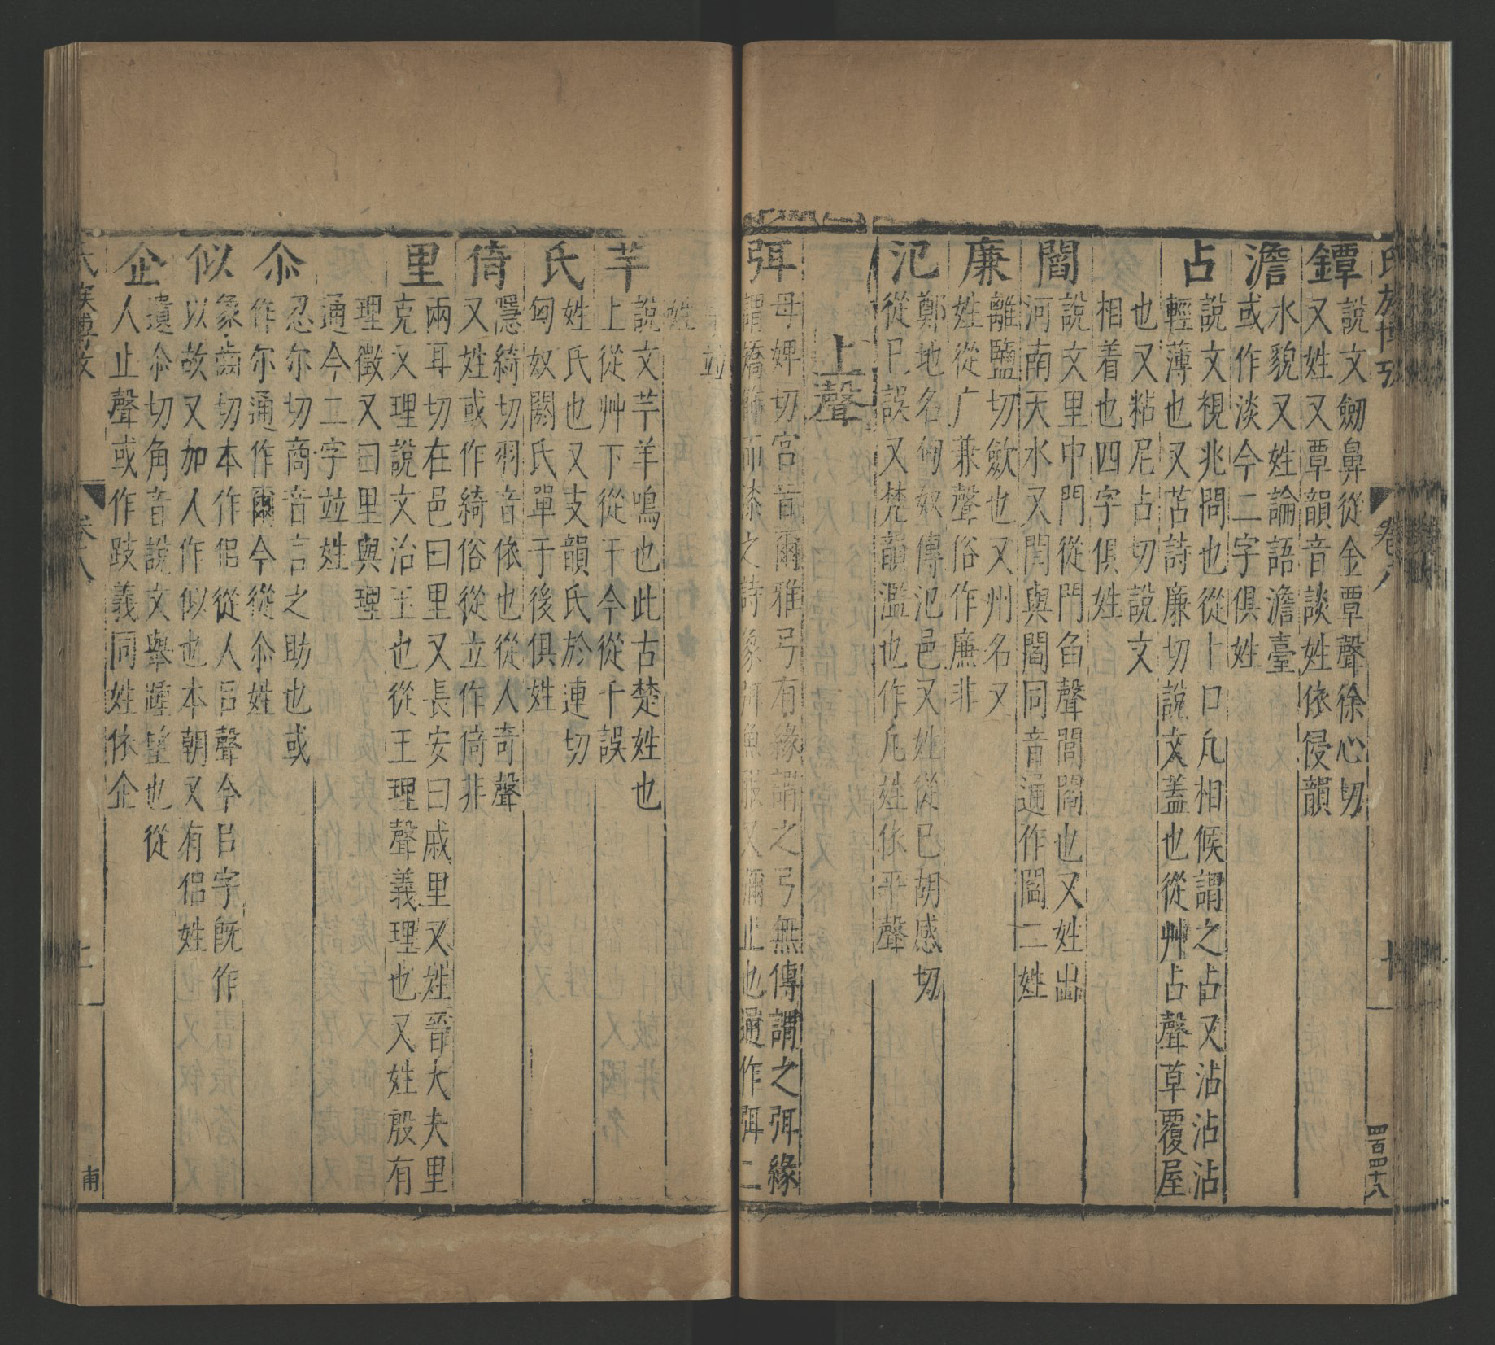 氏族博攷
卷八
四百四十八
鐔
說文劒鼻從金覃聲徐心切
又姓又覃韻音談姓依侵韻
澹
水貌又姓論語澹臺
或作淡今二字俱姓
占
說文視兆問也從卜口凡相候謂之占又沾沾
輕薄也又苫詩廉切說文蓋也從艸占聲草覆屋
也又粘尼占切說文
相着也四字俱姓
閻
說文里中門從門臽聲閻閻也又姓出
河南天水又閆與閻同音通作閻二姓
廉
離鹽切斂也又州名又
姓從广兼聲俗作㢘非
氾
鄭地名匈奴傳氾邑又姓從巳胡感切
從巳誤又梵韻濫也作凡姓依平聲
上聲
弭
母婢切宮首爾雅弓有緣謂之弓無傳謂之弭緣
謂之詩象弭魚服又彌止也通作弭二
姓並
芈
說文芈羊鳴也此古楚姓也
上從艸下從干今從千誤
氏
姓氏也又支韻氏於連切
匈奴閼氏單于後俱姓
倚
隱綺切羽音依也從人奇聲
又姓或作綺俗從立作倚非
里
兩耳切在邑曰里又長安曰戚里又姓晉大夫里
克又理說文治玉也從王理聲義理也又姓殷有
理徵又曰里與理
通今二字並姓
尒
忍尒切商音言之助也或
作尔通作爾今從尒姓
似
象齒切本作侣從人㠯聲今㠯字旣作
以故又加人作似也本朝又有侣姓
企
遣尒切角音說文舉踵望也從
人止聲或作跂義同姓依企
氏族博攷
卷八
十一
南